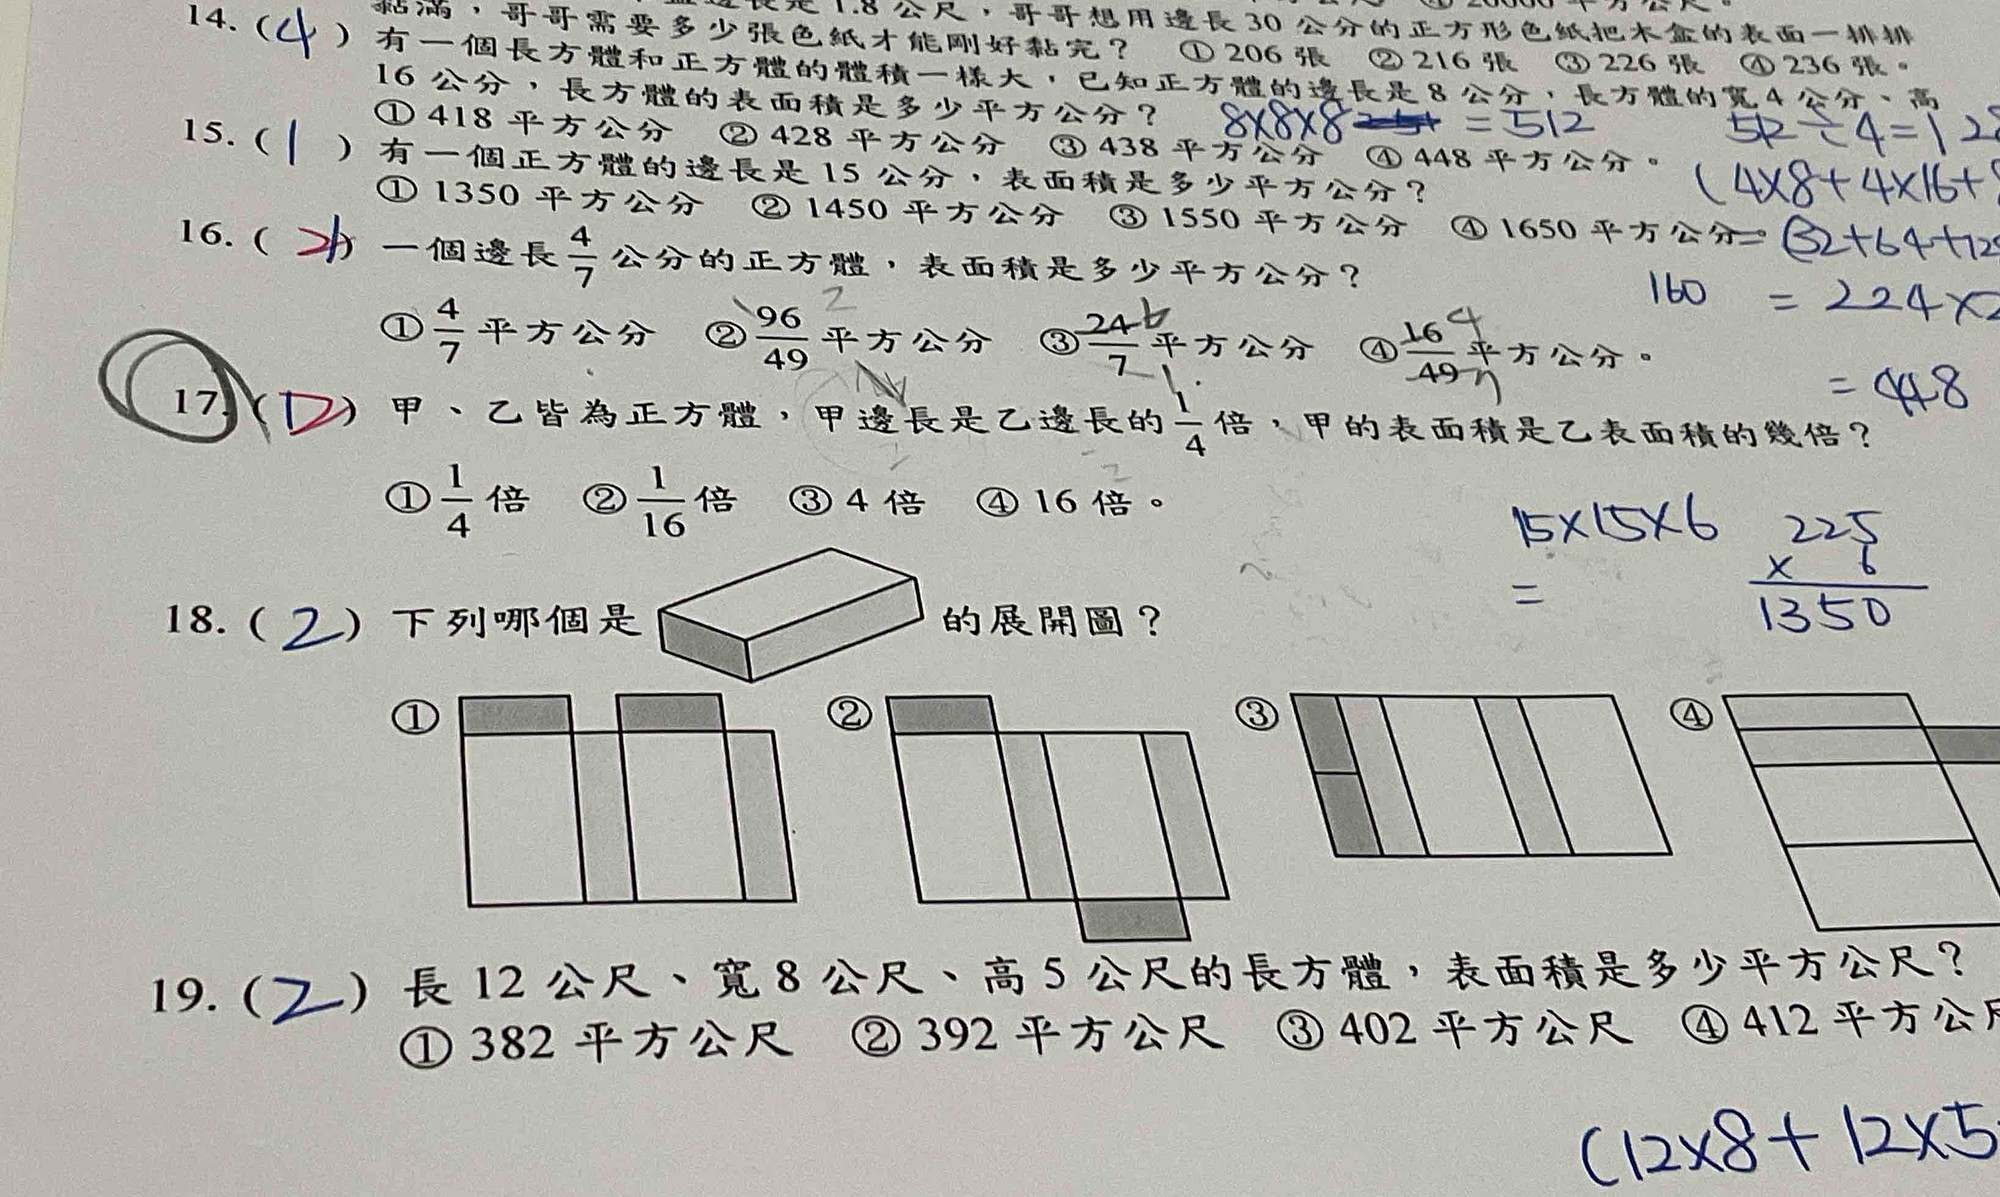 黏滿,哥哥需要多少張色紙才能剛好黏完? ① 206 張 ② 216 張 ③ 226 張 ④ 236 張。
1.8 公尺,哥哥想用邊長 30 公分的正方形色紙把木盒的表面一排排
14. (4) 有一個長方體和正方體的體積一樣大,已知正方體的邊長是 8 公分,長方體的寬 4 公分、高
16 公分,長方體的表面積是多少平方公分?
① 418 平方公分 ② 428 平方公分 ③ 438 平方公分 ④ 448 平方公分。
8×8×8 = 512
512 ÷ 4 = 128
15. (1) 有一個正方體的邊長是 15 公分,表面積是多少平方公分?
① 1350 平方公分 ② 1450 平方公分 ③ 1550 平方公分 ④ 1650 平方公分。
(4×8+4×16+8
= (32+64+128
160 = 224×2
= 448
16. (2) 一個邊長 4/7 公分的正方體,表面積是多少平方公分?
① 4/7 平方公分 ② 96/49 平方公分 ③ 24/7 平方公分 ④ 16/49 平方公分。
17. (2) 甲、乙皆為正方體,甲邊長是乙邊長的 1/4 倍,甲的表面積是乙表面積的幾倍?
① 1/4 倍 ② 1/16 倍 ③ 4 倍 ④ 16 倍。
15×15×6
=
225
× 6
1350
18. (2) 下列哪個是 的展開圖?
① ② ③ ④
19. (2) 長 12 公尺、寬 8 公尺、高 5 公尺的長方體,表面積是多少平方公尺?
① 382 平方公尺 ② 392 平方公尺 ③ 402 平方公尺 ④ 412 平方公尺
(12×8+12×5